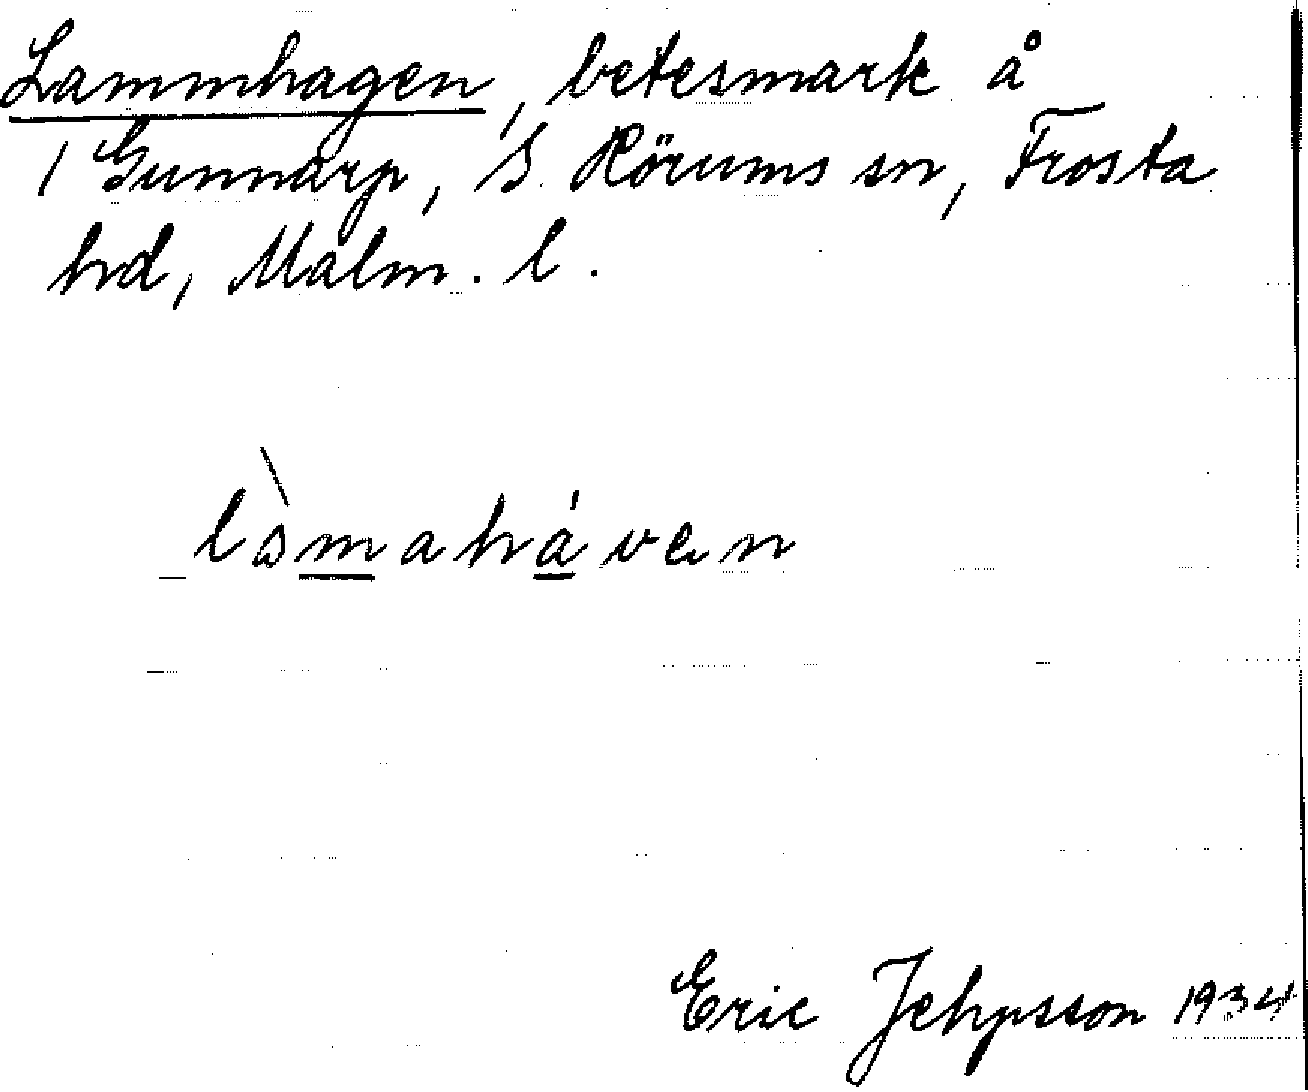 Lammhagen, betesmark å
1 Gunnarp, S. Rörums sn, Frosta
hd, Malm. l.
làmaháven
Eric Jehpsson 1934